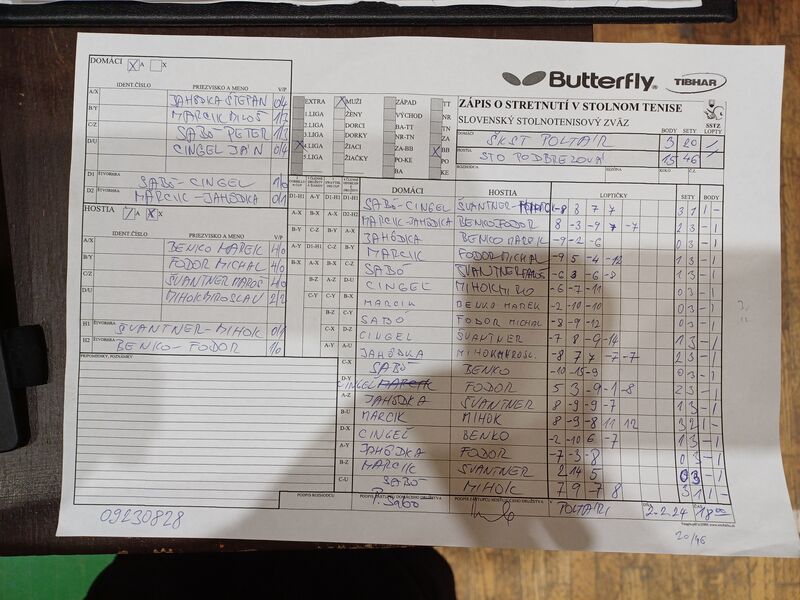 DOMÁCI X A
IDENT.ČÍSLO PRIEZVISKO A MENO V/P
A/X JAHÔDKA ŠTEPÁN 0/4
B/Y MARCIK MILOŠ 1/3
C/Z SABÓ PETER 1/3
D/U CINGEL JÁN 0/4
D1 ŠTVORHRA SABÓ-CINGEL 1/0
D2 MARCIK-JAHÔDKA 0/1
HOSTIA A X
IDENT.ČÍSLO PRIEZVISKO A MENO V/P
A/X BENKO MAREK 4/0
B/Y FODOR MICHAL 4/0
C/Z ŠVANTNER MAROŠ 4/0
D/U MIHOK MIROSLAV 2/2
H1 ŠTVORHRA ŠVANTNER-MIHOK 0/1
H2 ŠTVORHRA BENKO-FODOR 1/0
PRIPOMIENKY, POZNÁMKY
09230828
EXTRA X MUŽI ZÁPAD TT
1.LIGA ŽENY VÝCHOD NR
2.LIGA DORCI BA-TT TN
3.LIGA DORKY NR-TN ZA
X 4.LIGA ŽIACI ZA-BB X BB
5.LIGA ŽIAČKY PO-KE PO
BA KE
Butterfly TIBHAR
ZÁPIS O STRETNUTÍ V STOLNOM TENISE
SLOVENSKÝ STOLNOTENISOVÝ ZVÄZ
SSTZ
BODY SETY LOPTY
DOMÁCI ŠKST POLTÁR 3 20 /
HOSTIA STO PODBREZOVÁ 15 46 /
ROZHODCA SEZÓNA KOLO Č.Z.
DOMÁCI HOSTIA LOPTIČKY SETY BODY
SABÓ-CINGEL ŠVANTNER- -8 8 7 7 3 1 1 -
MARCIK-JAHÔDKA BENKO FODOR 8 -3 -9 7 -7 2 3 - 1
JAHÔDKA BENKO MAREK -9 -2 -6 0 3 - 1
MARCIK FODOR MICHAL -9 5 -4 -12 1 3 - 1
SABÓ ŠVANTNER MAROŠ -6 3 -6 -8 1 3 - 1
CINGEL MIHOK MIRO -6 -7 -11 0 3 - 1
MARCIK BENKO MAREK -2 -10 -10 0 3 - 1
SABÓ FODOR MICHAL -8 -9 -12 0 3 - 1
CINGEL ŠVANTNER -7 8 -9 -14 1 3 - 1
JAHÔDKA MIHOK MIROSL. -8 7 7 -7 -7 2 3 - 1
C-X SABÓ BENKO -10 -15 -9 0 3 - 1
D-Y CINGEL MARCIK FODOR 5 3 -9 -1 -8 2 3 - 1
A-Z JAHÔDKA ŠVANTNER 8 -9 -9 -7 1 3 - 1
B-U MARCIK MIHOK 8 -9 -8 11 12 3 2 1 -
D-X CINGEL BENKO -2 -10 6 -7 1 3 - 1
A-Y JAHÔDKA FODOR -7 -3 -8 0 3 - 1
B-Z MARCIK ŠVANTNER 2 14 5 0 3 - 1
C-U SABÓ MIHOK 7 9 -7 8 3 1 1 -
PODPIS ROZHODCU PODPIS ZÁSTUPCU DOMÁCEHO DRUŽSTVA PODPIS ZÁSTUPCU HOSŤUJÚCEHO DRUŽSTVA
P. Sabó POLTÁR 2.2.24 18 00
20/46